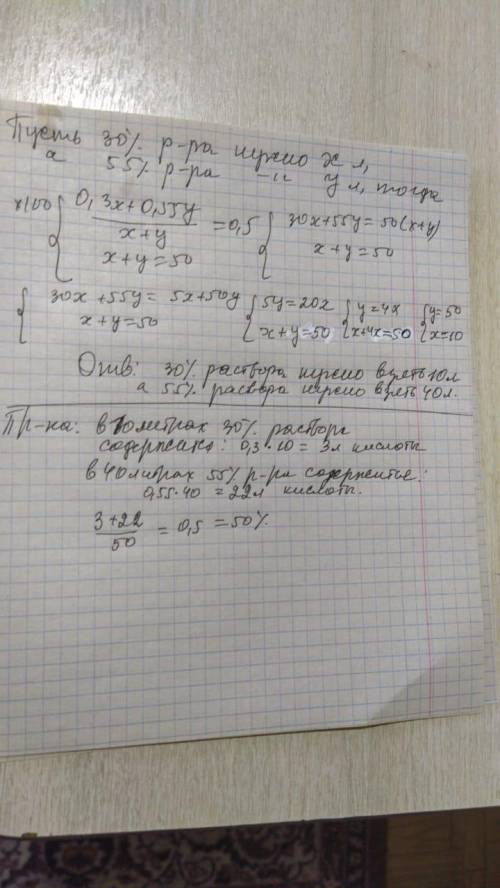 Пусть 30% р-ра нужно x л,
а 55% р-ра -"- y л, тогда
x100 { (0,3x+0,55y)/(x+y) = 0,5 { 30x+55y = 50(x+y)
x+y=50 x+y=50
{ 30x+55y = 5x+50y { 5y=20x { y=4x { y=50
x+y=50 x+y=50 x+4x=50 x=10
Отв: 30% раствора нужно взять 10л
а 55% раствора нужно взять 40л.
Пр-ка: в 10 литрах 30% раствора
содержит: 0,3·10 = 3л кислоты
в 40 литрах 55% р-ра содержится:
0,55·40 = 22л кислоты.
(3+22)/50 = 0,5 = 50%